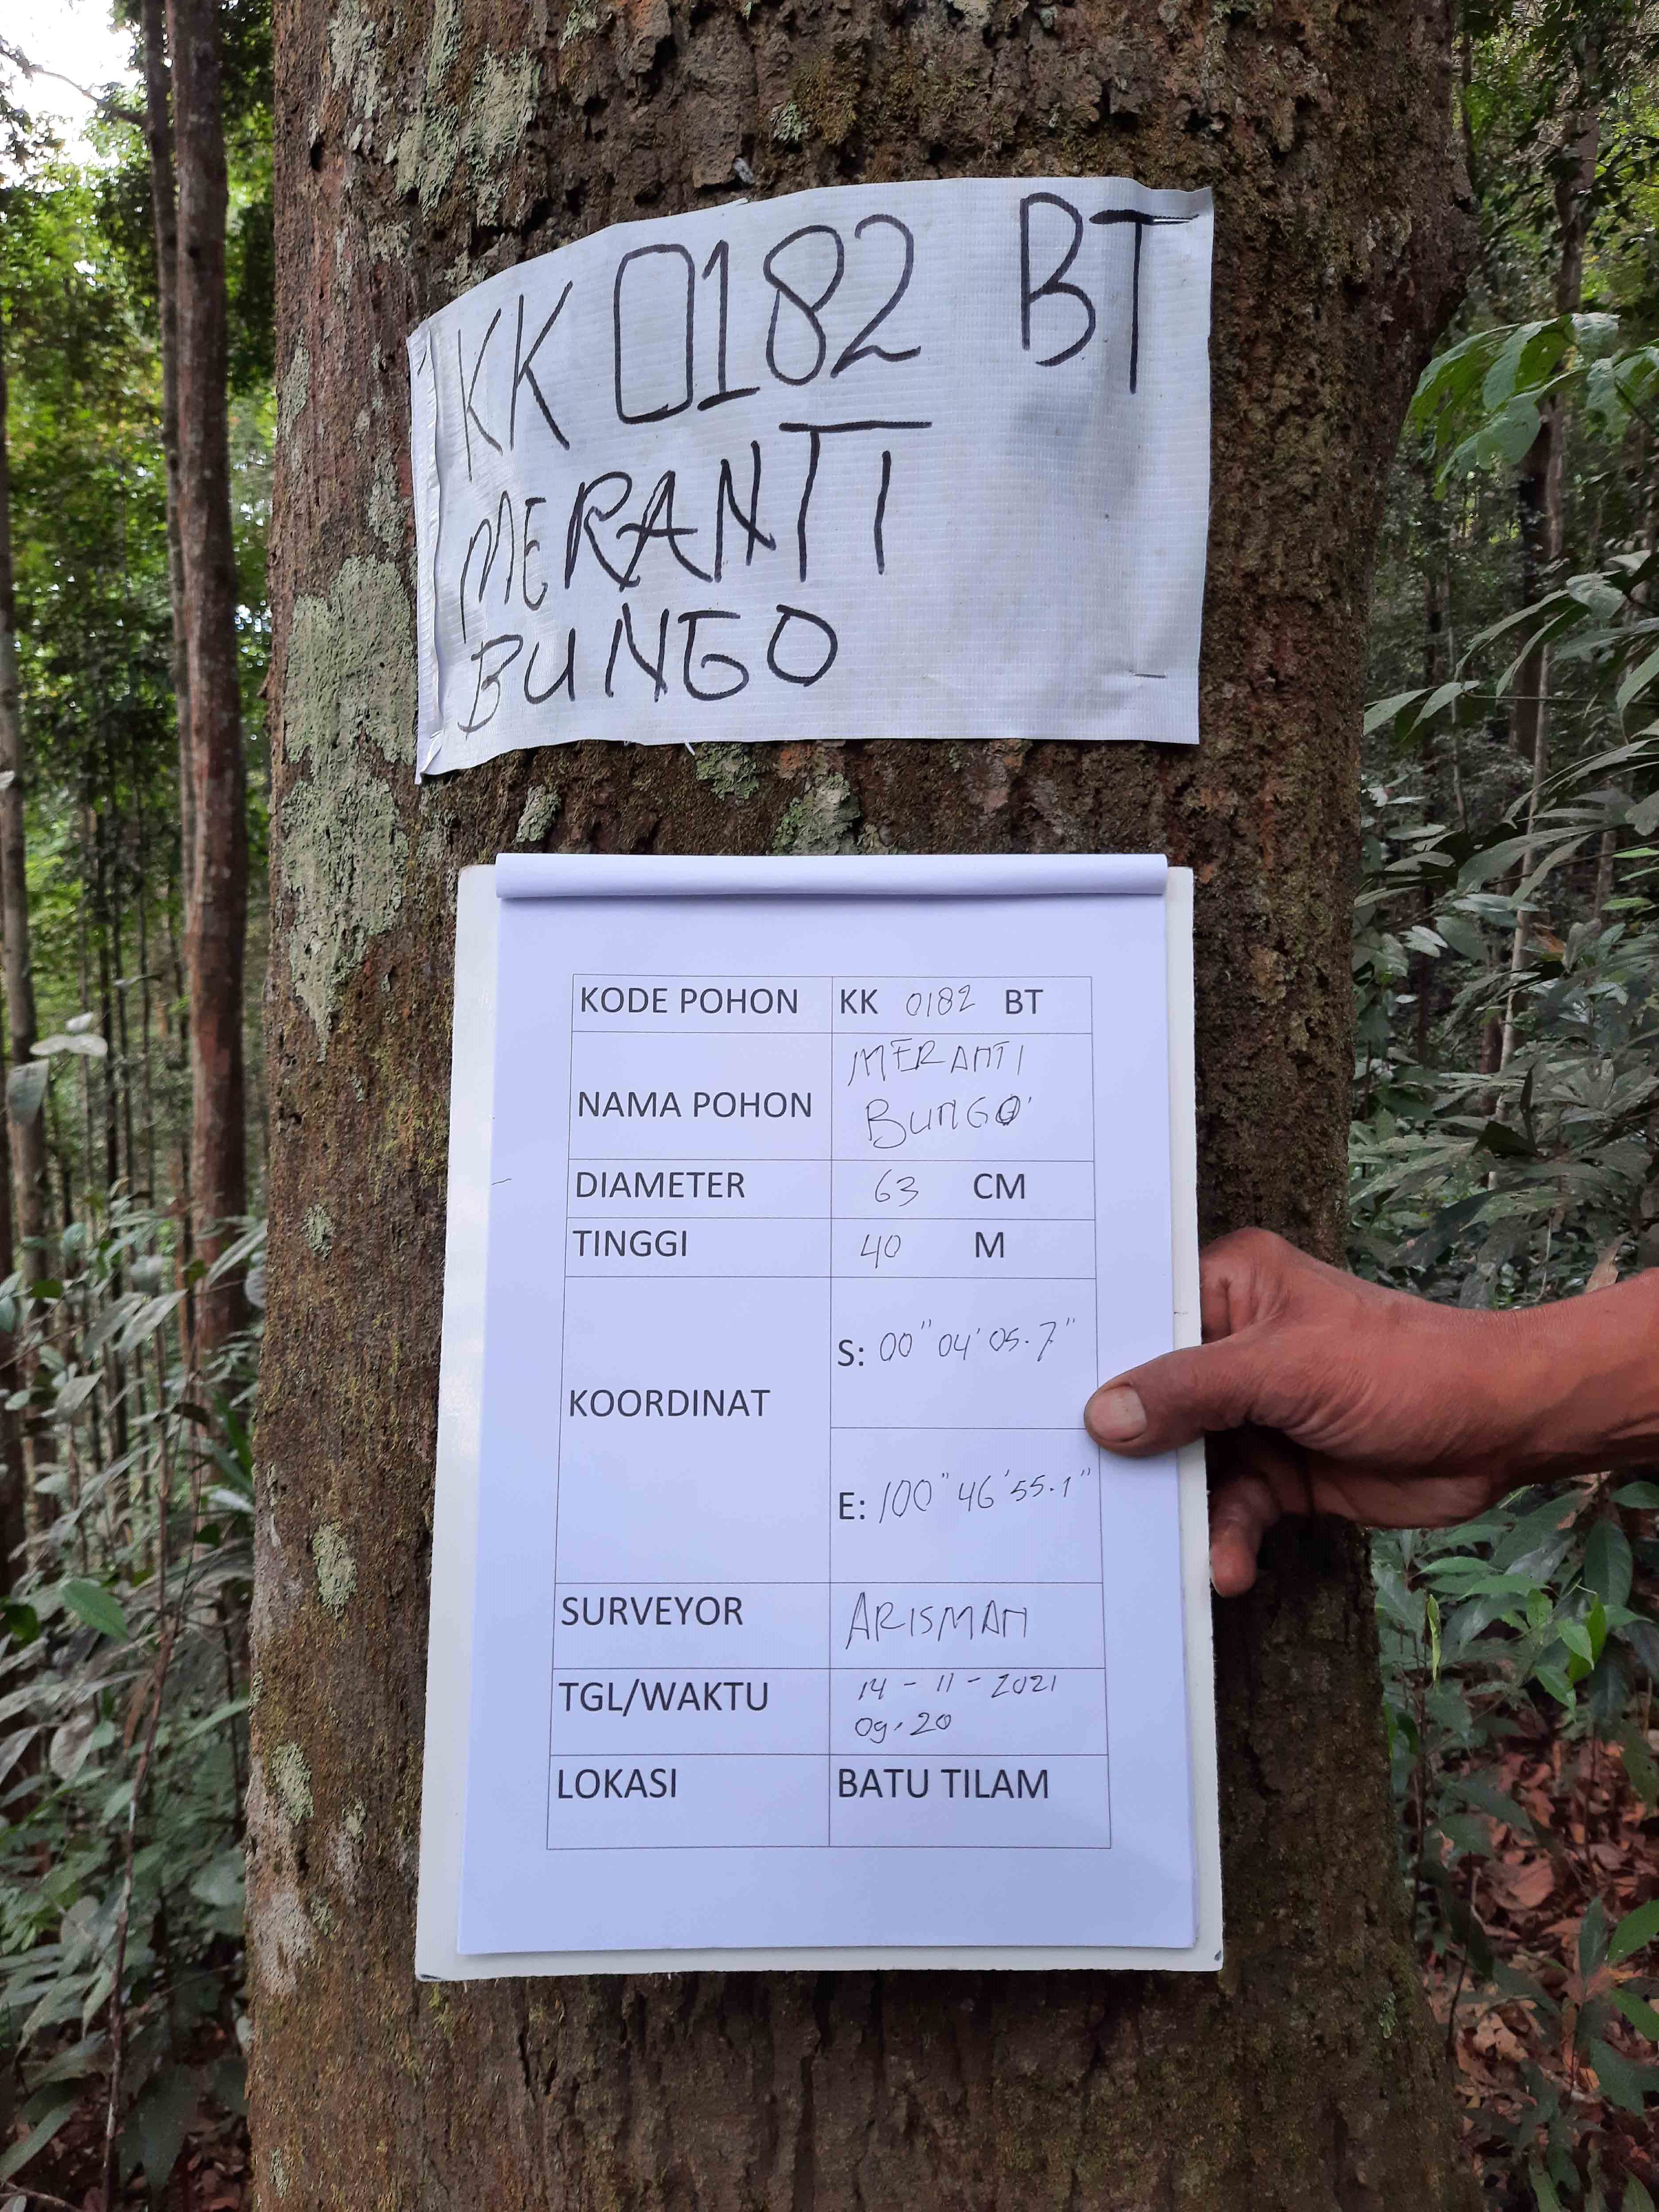 KK 0182 BT
MERANTI
BUNGO
KODE POHON KK 0182 BT
NAMA POHON MERANTI
BUNGO
DIAMETER 63 CM
TINGGI 40 M
KOORDINAT
S: 00" 04' 05.7"
E: 100" 46' 55.1"
SURVEYOR ARISMAN
TGL/WAKTU 14 - 11 - 2021
09.20
LOKASI BATU TILAM